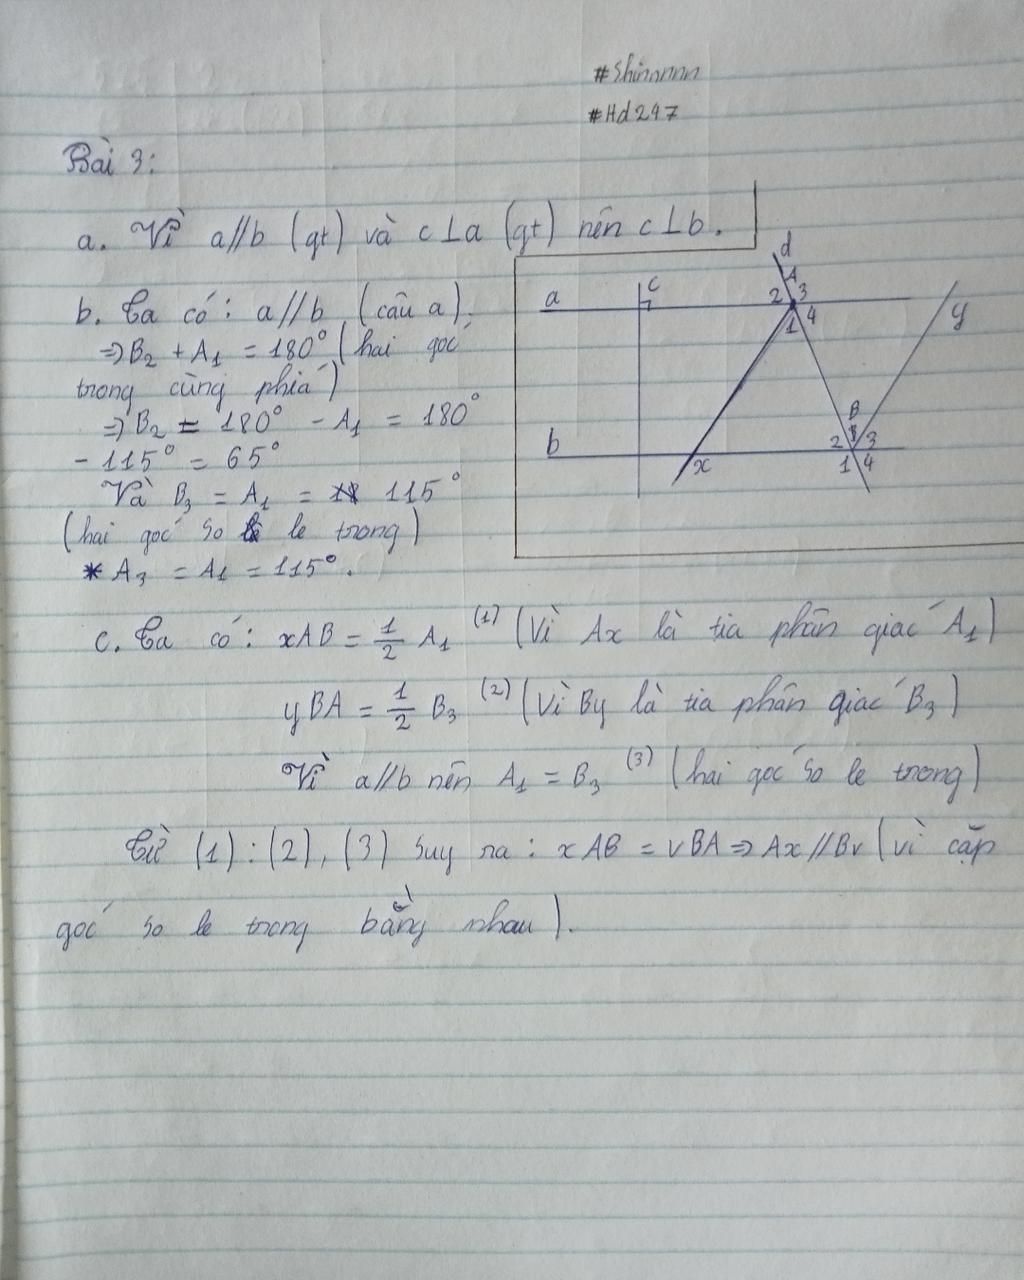 #Shinnnnn
#Hd247
Bài 3:
a. Vì a//b (gt) và c⊥a (gt) nên c⊥b.
b. Ta có: a//b (câu a).
⇒B₂ + A₁ = 180° (hai góc
trong cùng phía)
⇒B₂ = 180° - A₁ = 180°
- 115° = 65°
Và B₃ = A₁ = 115°
(hai góc so le trong)
* A₃ = A₁ = 115°.
d
A
c
a
2 3
1 4
y
B
b
2 3
x
1 4
c. Ta có: xAB = 1/2 A₁ (1) (Vì Ax là tia phân giác A₁)
yBA = 1/2 B₃ (2) (Vì By là tia phân giác B₃)
Vì a//b nên A₁ = B₃ (3) (hai góc so le trong)
Từ (1) : (2), (3) suy ra : xAB = vBA ⇒ Ax // Bv (vì cặp
góc so le trong bằng nhau).